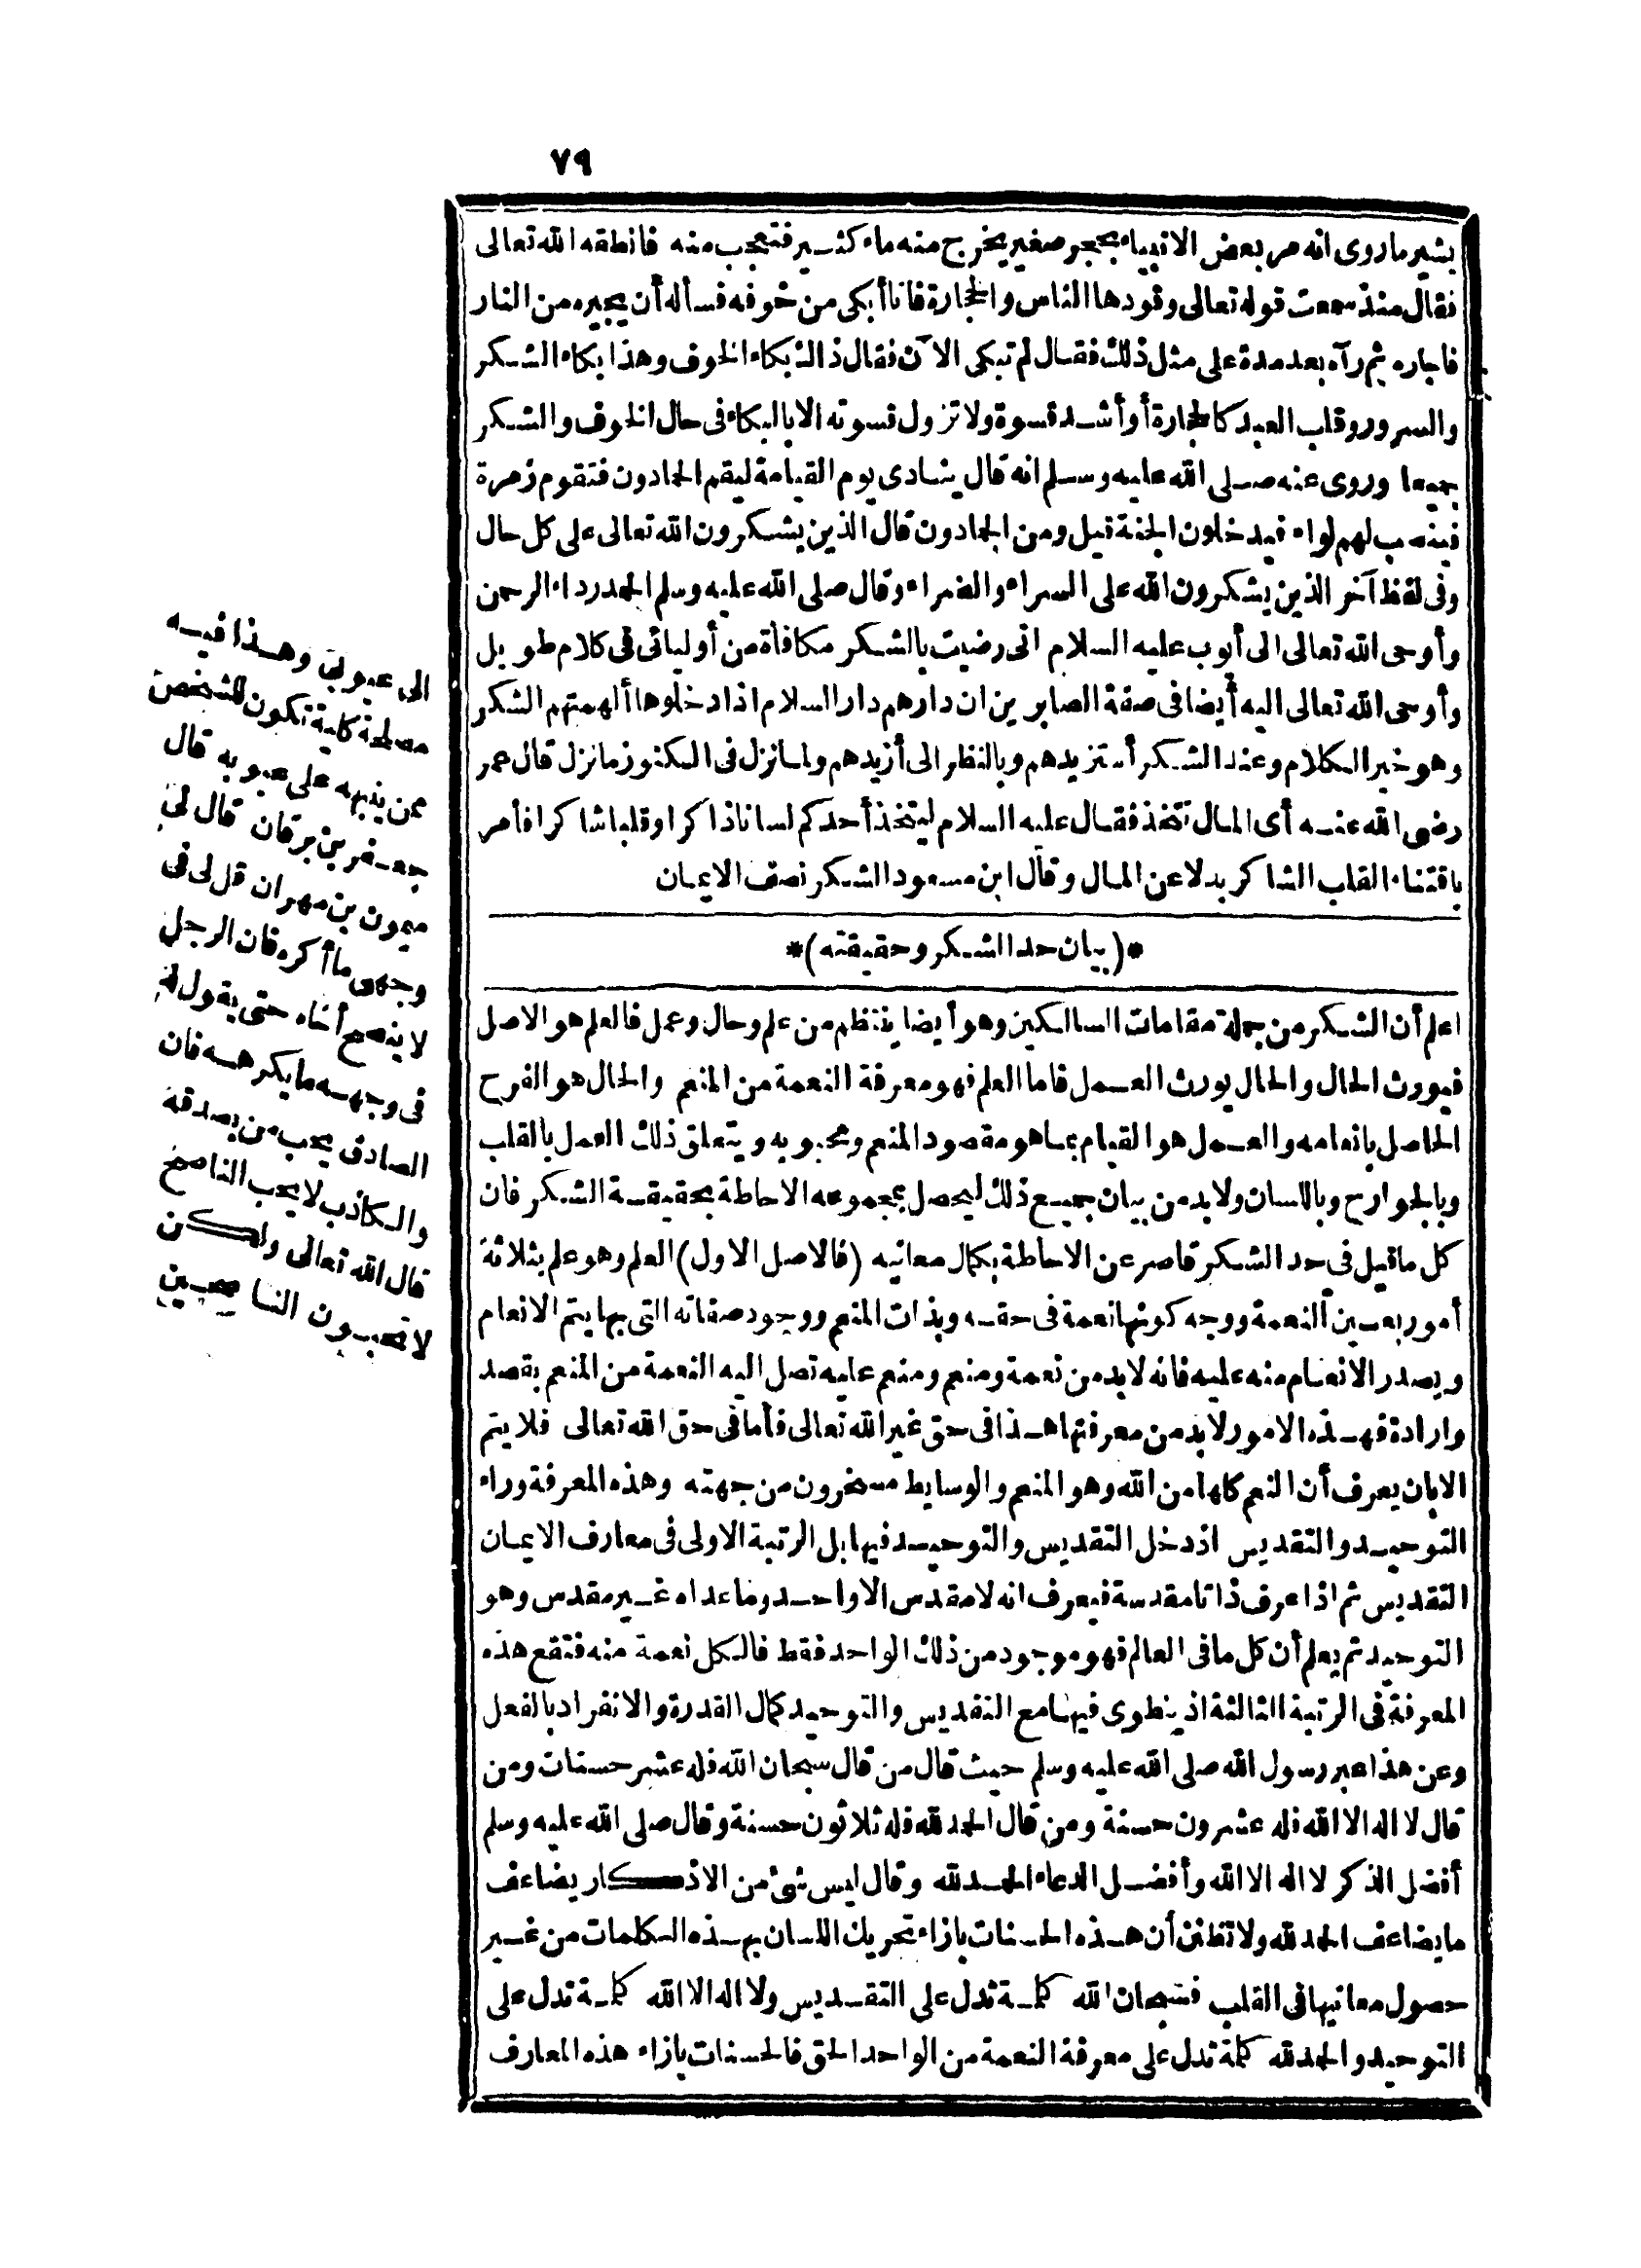 ٧٩
يشير ما روى انه مر بعض الانبياء بحجر صغير يخرج منه ماء كثير فتعجب منه فانطقه الله تعالى
فقال منذ سمعت قوله تعالى وقودها الناس والحجارة فانا أبكى من خوفه فسأله أن يجيره من النار
فاجاره ثم رآه بعد مدة على مثل ذلك فقال لم تبكى الآن فقال ذاك بكاء الخوف وهذا بكاء الشكر
والسرور وقلب العبد كالحجارة أو أشد قسوة ولا تزول قسوته الا بالبكاء فى حال الخوف والشكر
جميعا وروى عنه صلى الله عليه وسلم انه قال ينادى يوم القيامة ليقم الحمادون فتقوم زمرة
فينصب لهم لواء فيدخلون الجنة قيل ومن الحمادون قال الذين يشكرون الله تعالى على كل حال
وفى لفظ آخر الذين يشكرون الله على السراء والضراء وقال صلى الله عليه وسلم الحمد رداء الرحمن
وأوحى الله تعالى الى أيوب عليه السلام انى رضيت بالشكر مكافأة من أوليائى فى كلام طويل
وأوحى الله تعالى اليه أيضا فى صفة الصابرين ان دارهم دار السلام اذا دخلوها ألهمتهم الشكر
وهو خير الكلام وعند الشكر أستزيدهم وبالنظر الى أزيدهم ولما نزل فى الكنوز ما نزل قال عمر
رضى الله عنه أى المال نتخذ فقال عليه السلام ليتخذ أحدكم لسانا ذاكرا وقلبا شاكرا فأمر
باقتناء القلب الشاكر بدلا عن المال وقال ابن مسعود الشكر نصف الايمان
*(بيان حد الشكر وحقيقته)*
اعلم أن الشكر من جملة مقامات السالكين وهو أيضا ينتظم من علم وحال وعمل فالعلم هو الاصل
فيورث الحال والحال يورث العمل فاما العلم فهو معرفة النعمة من المنعم والحال هو الفرح
الحاصل بانعامه والعمل هو القيام بما هو مقصود المنعم ومحبوبه ويتعلق ذلك العمل بالقلب
وبالجوارح وباللسان ولا بد من بيان جميع ذلك ليحصل بمجموعه الاحاطة بحقيقة الشكر فان
كل ما قيل فى حد الشكر قاصر عن الاحاطة بكمال معانيه (فالاصل الاول) العلم وهو علم بثلاثة
أمور بعين النعمة ووجه كونها نعمة فى حقه وبذات المنعم ووجود صفاته التى بها يتم الانعام
ويصدر الانعام منه عليه فانه لا بد من نعمة ومنعم ومنعم عليه تصل اليه النعمة من المنعم بقصد
وارادة فهذه الامور لا بد من معرفتها هذا فى حق غير الله تعالى فأما فى حق الله تعالى فلا يتم
الا بان يعرف أن النعم كلها من الله وهو المنعم والوسايط مسخرون من جهته وهذه المعرفة وراء
التوحيد والتقديس اذ دخل التقديس والتوحيد فيها بل الرتبة الاولى فى معارف الايمان
التقديس ثم اذا عرف ذاتا مقدسة فيعرف انه لا مقدس الا واحد وما عداه غير مقدس وهو
التوحيد ثم يعلم أن كل ما فى العالم فهو موجود من ذلك الواحد فقط فالكل نعمة منه فتقع هذه
المعرفة فى الرتبة الثالثة اذ ينطوى فيها مع التقديس والتوحيد كمال القدرة والانفراد بالفعل
وعن هذا عبر رسول الله صلى الله عليه وسلم حيث قال من قال سبحان الله فله عشر حسنات ومن
قال لا اله الا الله فله عشرون حسنة ومن قال الحمد لله فله ثلاثون حسنة وقال صلى الله عليه وسلم
أفضل الذكر لا اله الا الله وأفضل الدعاء الحمد لله وقال ليس شئ من الاذكار يضاعف
ما يضاعف الحمد لله ولا تظنن أن هذه الحسنات بازاء تحريك اللسان بهذه الكلمات من غير
حصول معانيها فى القلب فسبحان الله كلمة تدل على التقديس ولا اله الا الله كلمة تدل على
التوحيد والحمد لله كلمة تدل على معرفة النعمة من الواحد الحق فالحسنات بازاء هذه المعارف
الى عيوبى وهذا فيه
مصلحة كلية تكون للشخص
ممن ينبهه على عيوبه قال
جعفر بن برقان قال لى
ميمون بن مهران قل لى فى
وجهى ما أكره فان الرجل
لا ينصح أخاه حتى يقول له
فى وجهه ما يكرهه فان
الصادق يحب من يصدقه
والكاذب لا يحب الناصح
قال الله تعالى ولكن
لا تحبون الناصحين